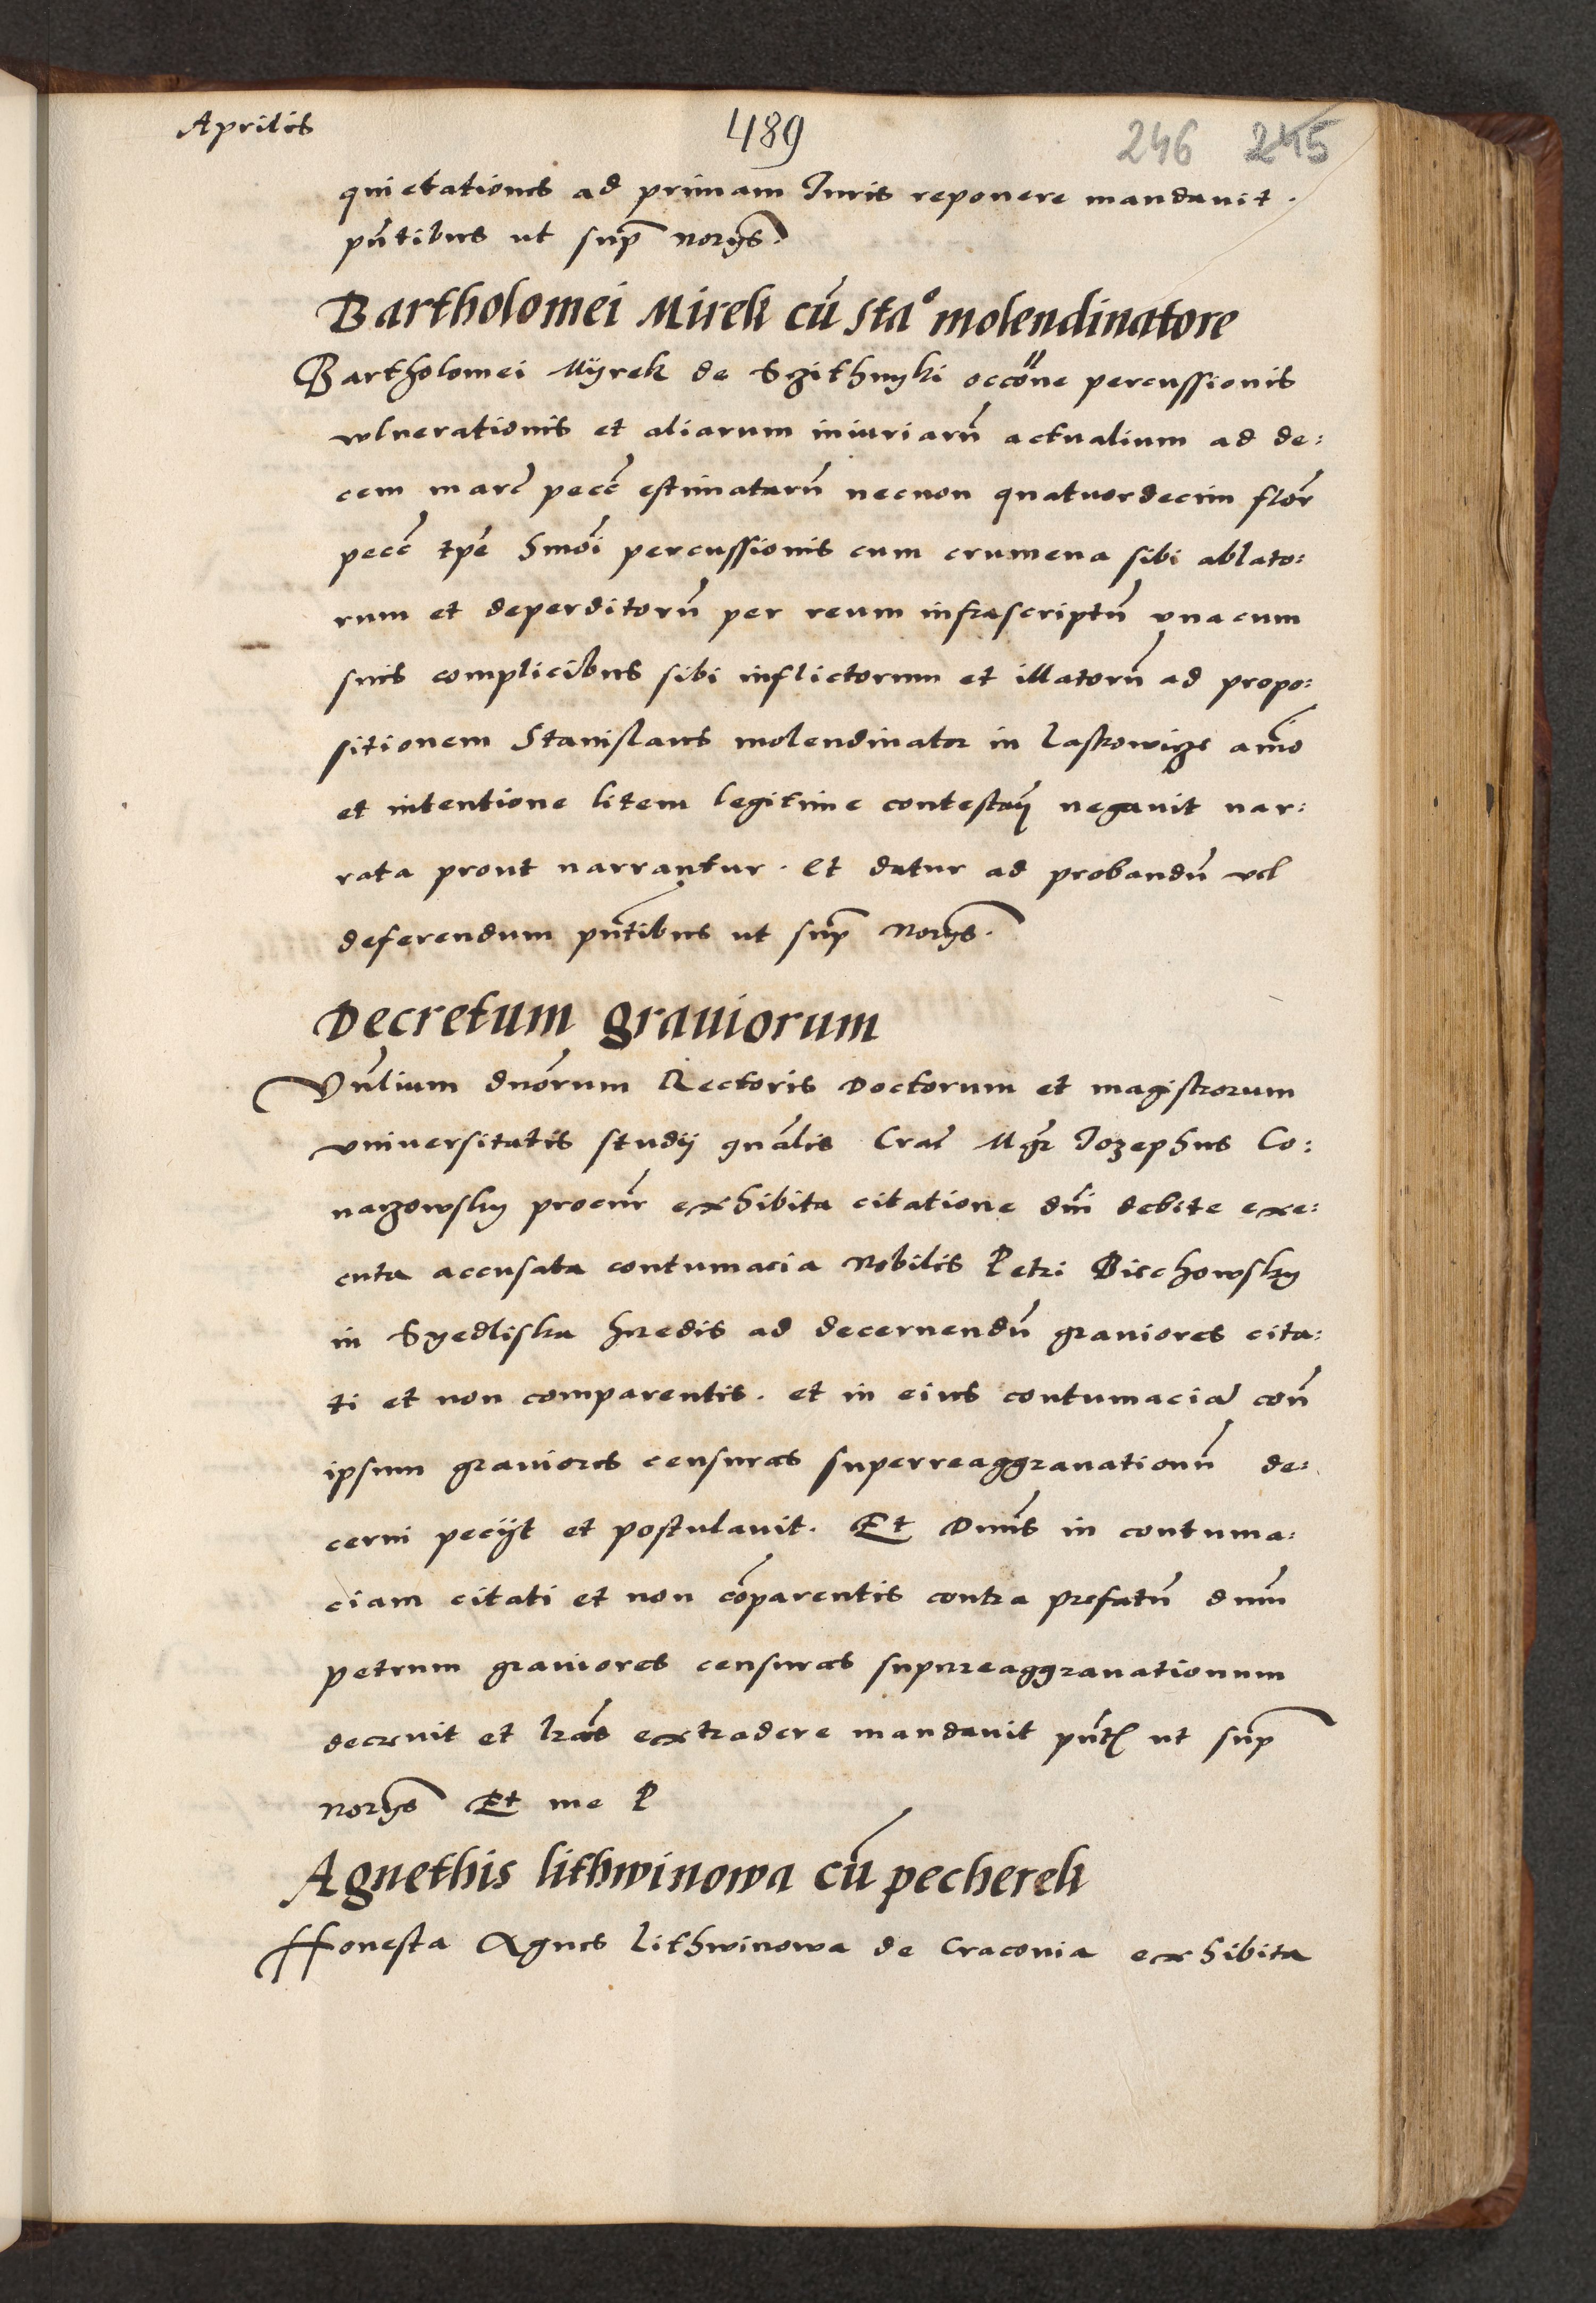 Aprilis 489 246 245
quietationes ad primam Iuris reponere mandauit.
pntibus ut sup norys.
Bartholomei Mirek cū sta° molendinatore
Bartholomei Mÿrek de Szithnyki occōne percussionis
wlnerationis et aliarum iniuriarū actualium ad de:
cem marc pecc estimatarū necnon quatuordecim flor
pecc tpe hmoi percussionis cum crumena sibi ablato:
rum et deperditorū per reum infrascriptū vna cum
suis complicibus sibi inflictorum et illatorū ad propo:
sitionem Stanislaus molendinator in Laskowize aīo
et intentione litem legitime contestaɳ negauit nar:
rata prout narrantur. Et datur ad probandū vel
deferendum pntibus ut sup norys.
Decretum grauiorum
Vnlium dnorum Rectoris Doctorum et magistrorum
vniuersitatis studij gnalis Crac Mgr Iozephus Co:
nazowsky procur exhibita citatione dni debite exe:
cuta accusata contumacia Nobilis Petri Biechowsky
in Syedliska hredis ad decernendū grauiores cita:
ti et non comparentis. et in eius contumacia con
ipsum grauiores censuras superreaggrauationū de:
cerni pecijt et postulauit. Et Dnus in contuma:
ciam citati et non cōparentis contra prefatū dnm
petrum grauiores censuras suprreaggrauationum
decreuit et lras extradere mandauit pnt ut sup
norys Et me P
Agnethis lithwinowa cū pecherek
Honesta Agnes Lithwinowa de Cracouia exhibita